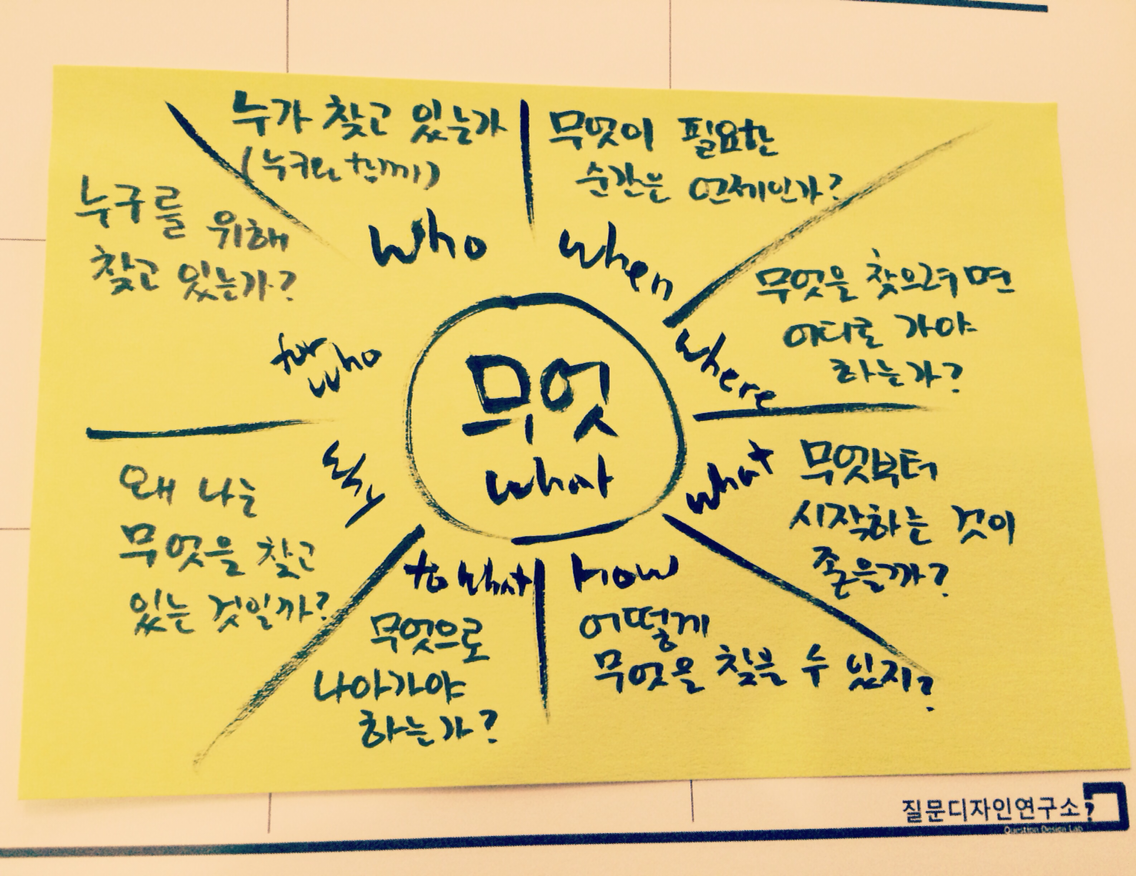 누가 찾고 있는가
(누구와 함께)
who
무엇이 필요한
순간은 언제인가?
when
무엇을 찾으려면
어디로 가야
하는가?
where
what
무엇부터
시작하는 것이
좋을까?
How
어떻게
무엇을 찾을 수 있지?
to what
무엇으로
나아가야
하는가?
why
왜 나는
무엇을 찾고
있는 것일까?
for
who
누구를 위해
찾고 있는가?
무엇
what
질문디자인연구소
Question Design Lab